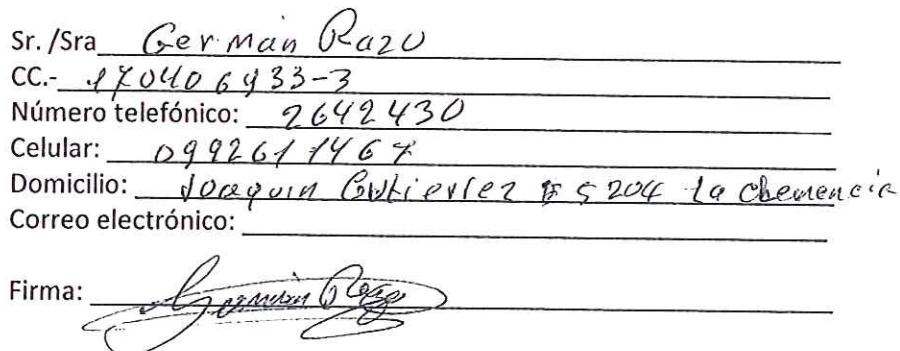 Sr. /Sra Germán Razo
CC.- 170406933-3
Número telefónico: 2642430
Celular: 0992611467
Domicilio: Joaquin Gutierrez E5204 La Clemencia
Correo electrónico:
Firma: Germán Razo